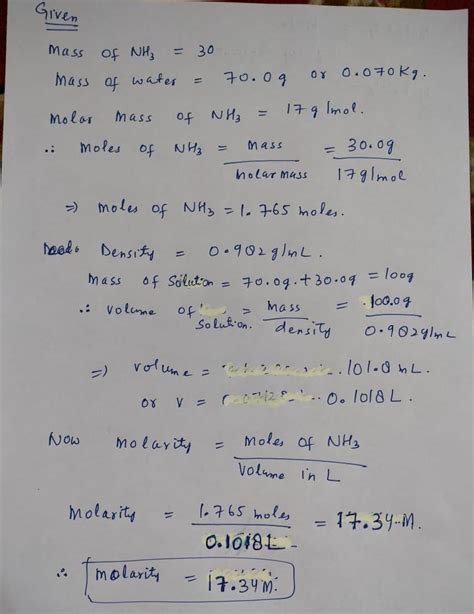 Given
Mass of NH3 = 30
Mass of water = 70.0g or 0.070Kg.
Molar Mass of NH3 = 17g/mol.
∴ Moles of NH3 = Mass / Molar mass = 30.0g / 17g/mol
=> Moles of NH3 = 1.765 moles.
Density = 0.982g/mL.
Mass of Solution = 70.0g. + 30.0g = 100g
∴ Volume of Solution. = Mass / density = 100.0g / 0.982g/mL
=> Volume = 101.8 mL.
or V = 0.1018L.
Now Molarity = Moles of NH3 / Volume in L
Molarity = 1.765 moles / 0.1018L = 17.34 M.
∴ Molarity = 17.34M.